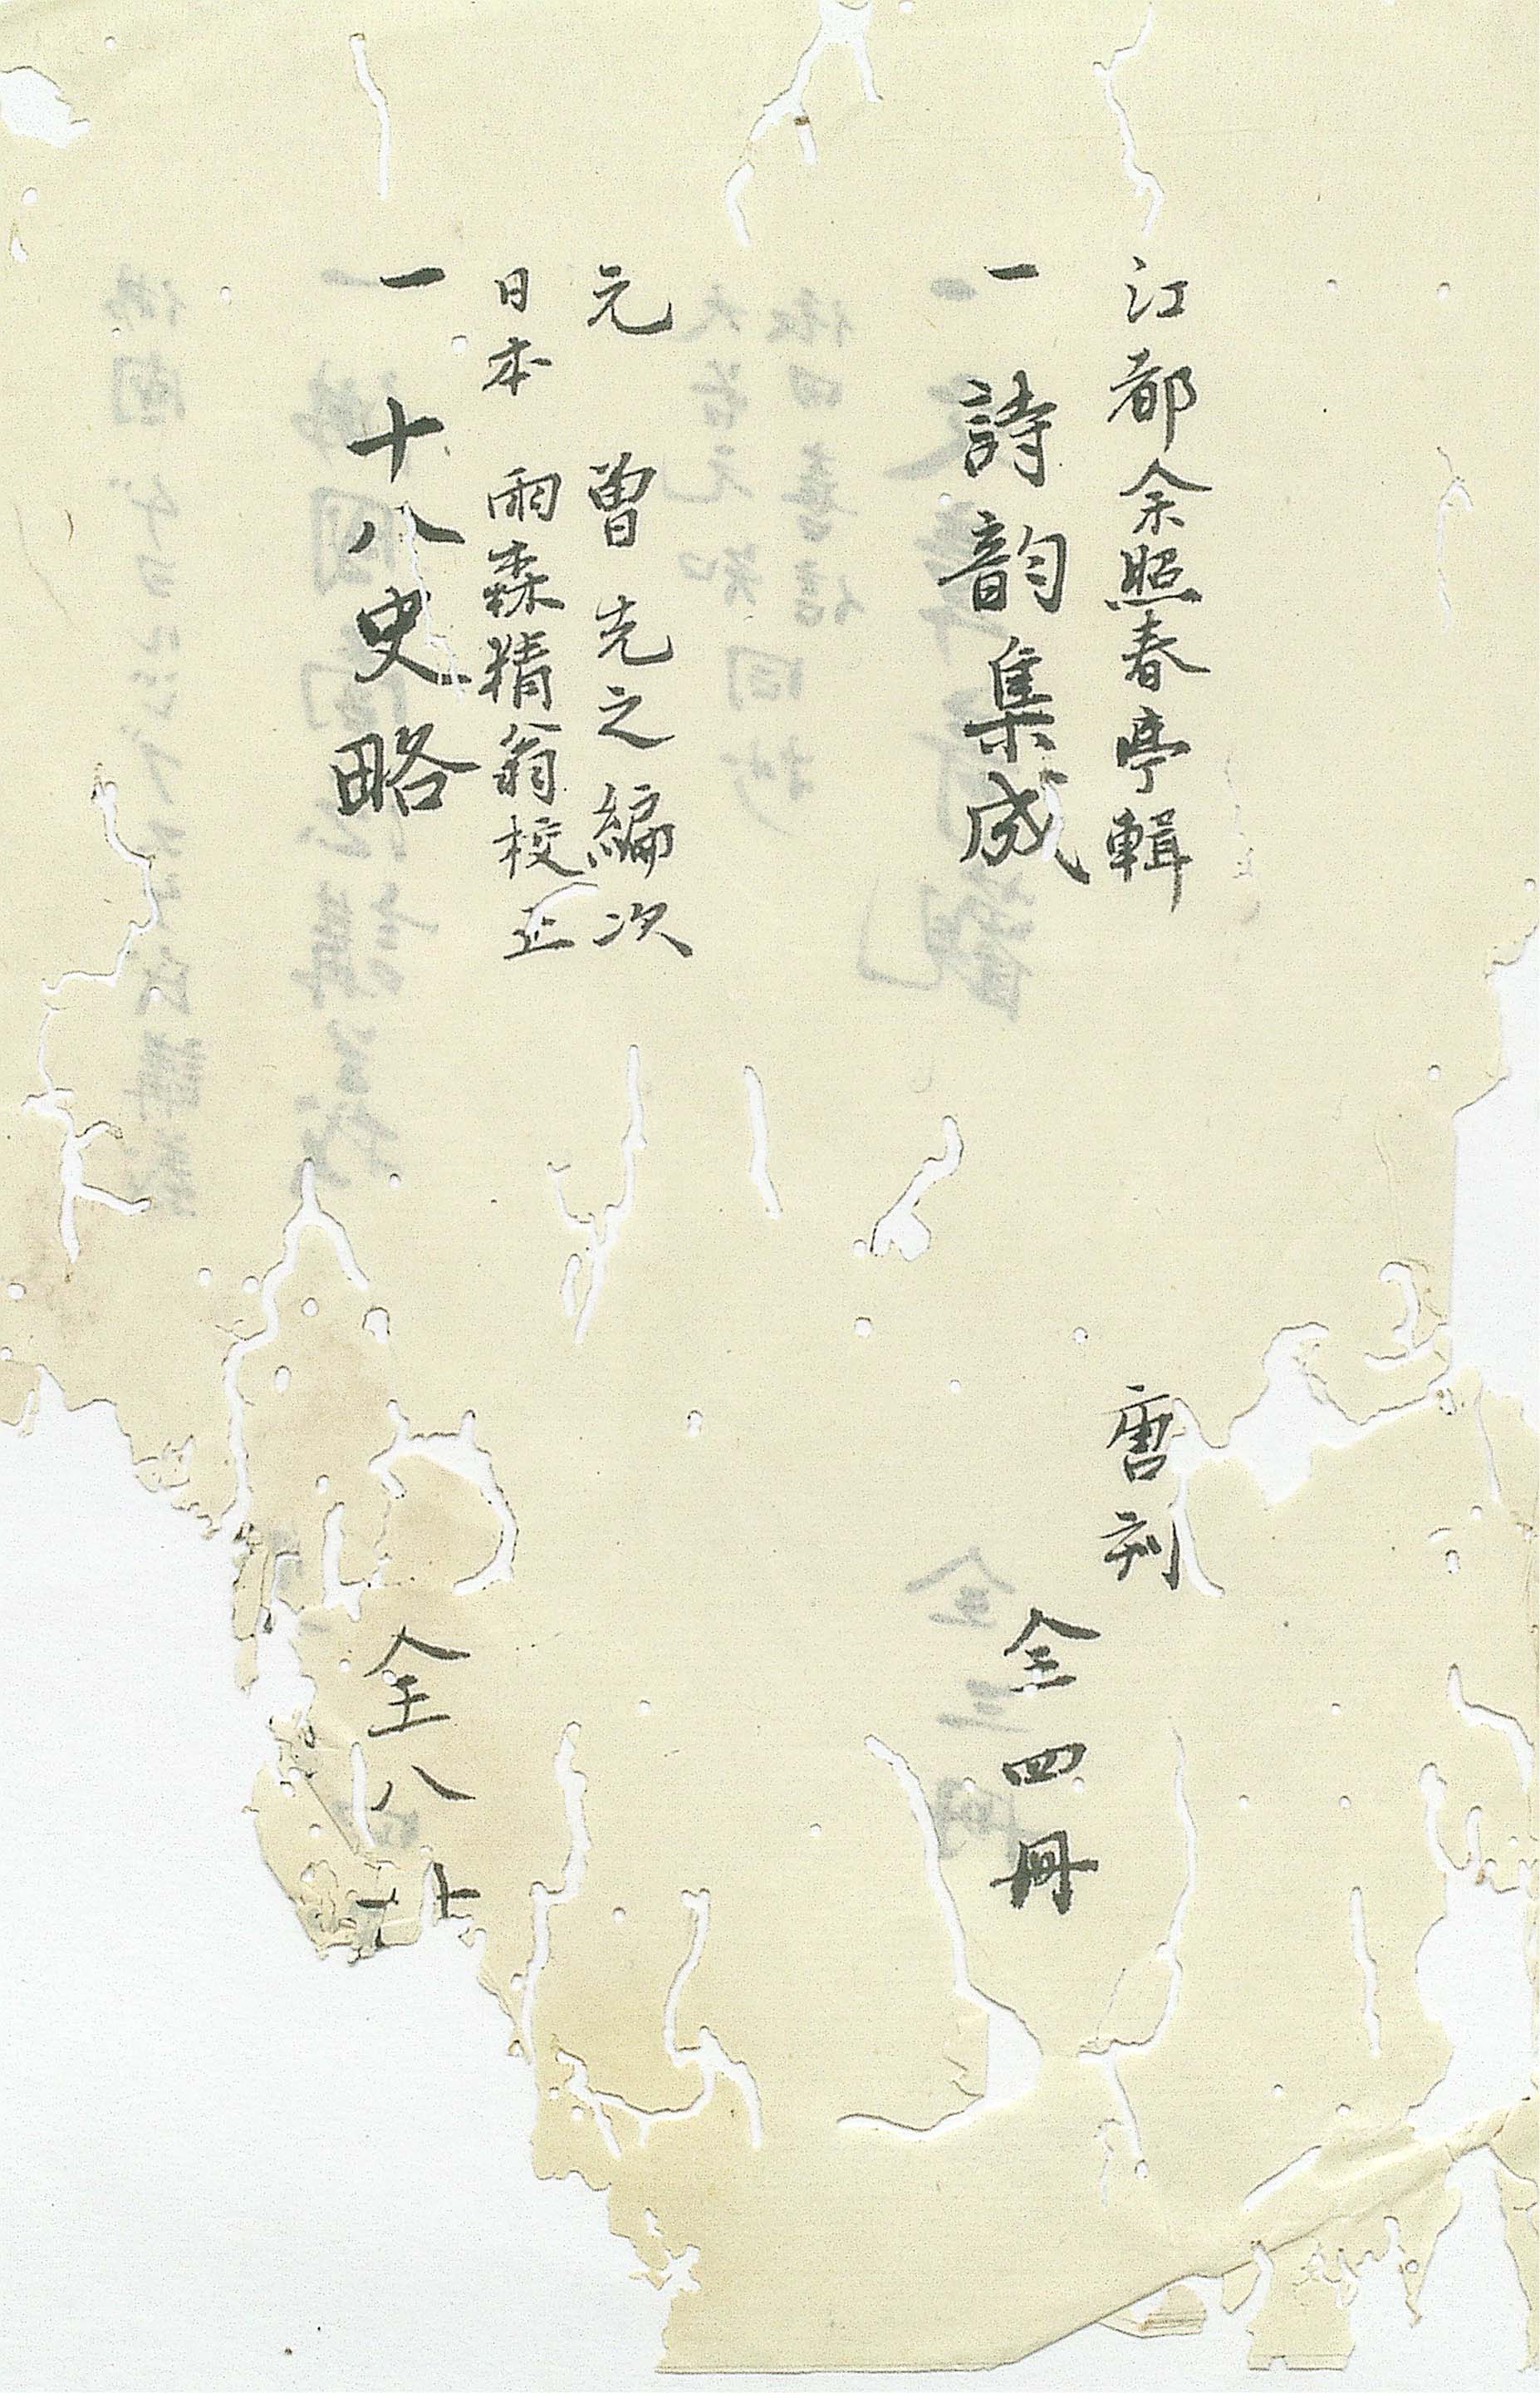 江都余照春亭輯
唐刊
一 詩韵集成
全四冊
元 曽先之編次
日本 雨森精翁校正
一 十八史略
全八